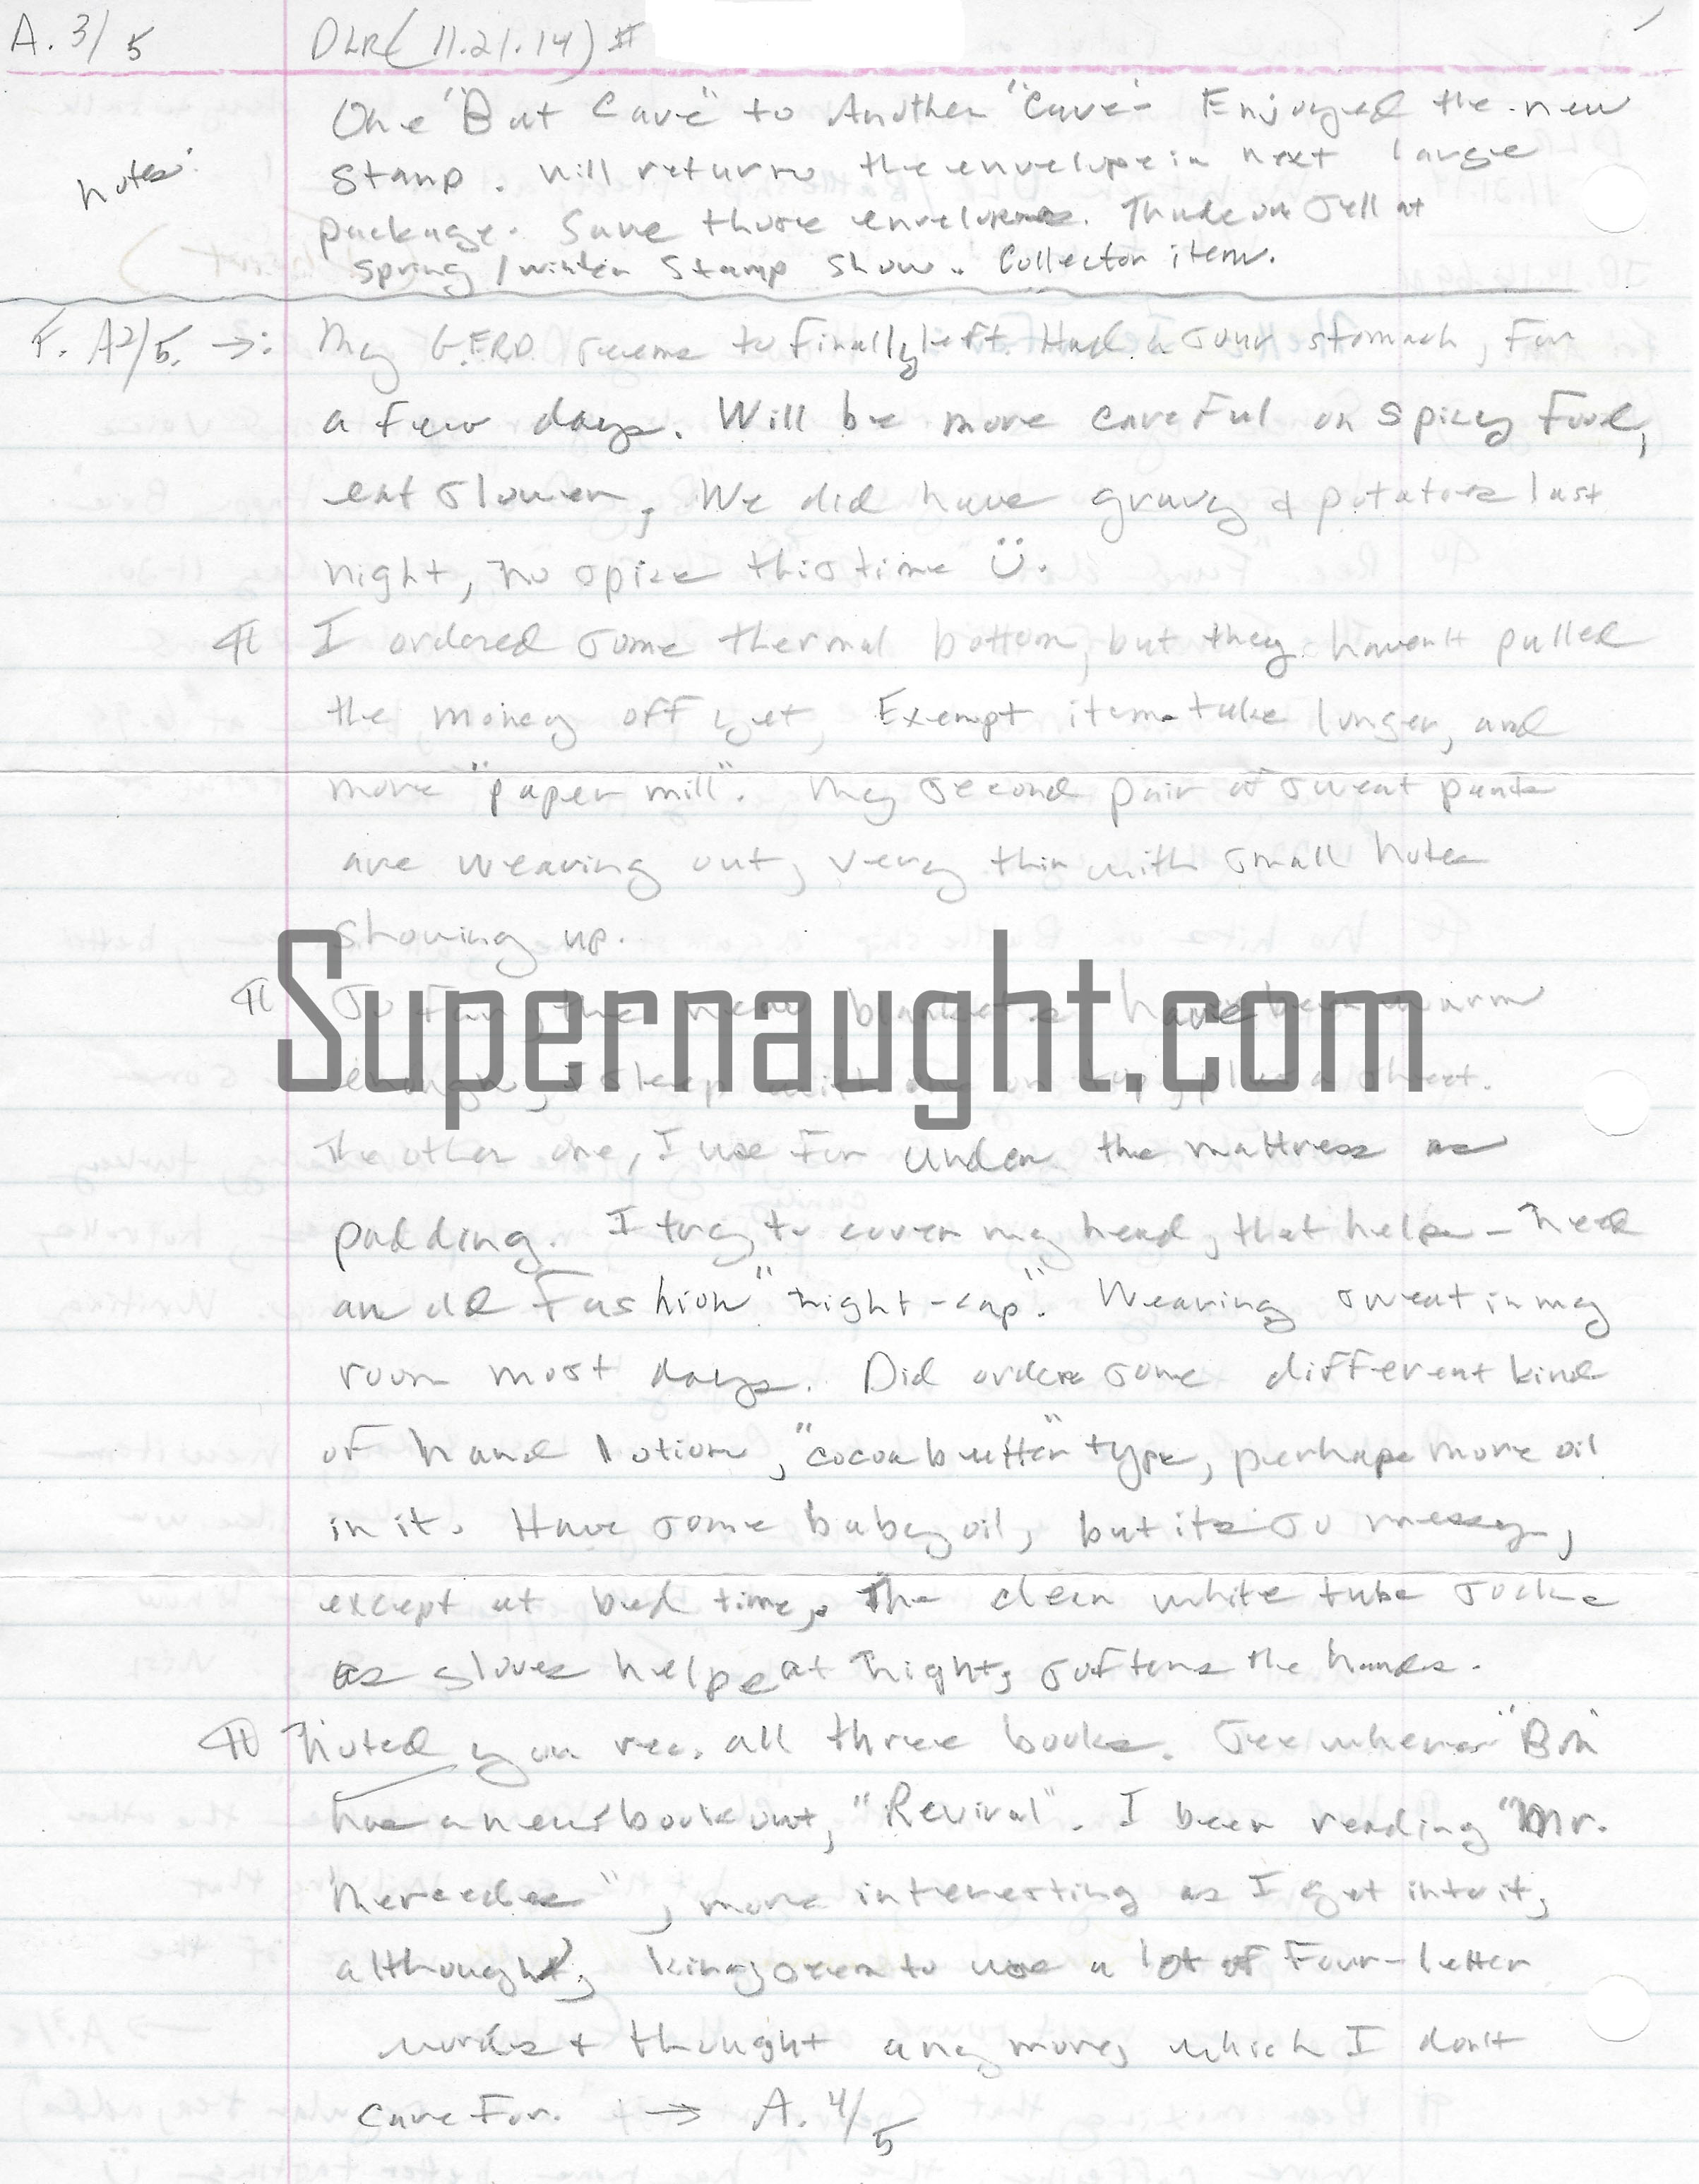 A. 3/5 DLR (11.21.14) #
One "Bat Cave" to Another "Cave"- Enjoyed the new
notes: stamp. Will return the envelope in next large
package. Save those envelopes. Trade or sell at
spring/winter stamp show. Collector item.
F. A2/5. →: My GERD seems to finally left. Had a sour stomach, for
a few days. Will be more careful on spicy food,
eat slower, We did have gravy & potatoes last
night, no spice this time Ü.
¶ I ordered some thermal bottom, but they haven't pulled
the money off yet, Exempt items take longer, and
more "paper mill". My second pair of sweat pants
are wearing out, very thin with small holes
showing up.
¶ So far, the new blankets have been warm
enough, I sleep with one on top, plus a sheet.
The other one, I use for under the mattress as
padding. I try to cover my head, that helps - need
an old fashion "night-cap". Wearing sweat in my
room most days. Did order some different kind
of hand lotion, "cocoa butter" type, perhaps more oil
in it. Have some baby oil, but its so messy,
except at bed time, The clean white tube socks
as gloves helps at night, softens the hands.
¶ Noted you rec. all three books. See where
has a new book out, "Revival". I been reading "Mr.
Mercedes", more interesting as I get into it,
although, King seem to use a lot of four-letter
words & thought any more, which I don't
care for. → A. 4/5
Supernaught.com